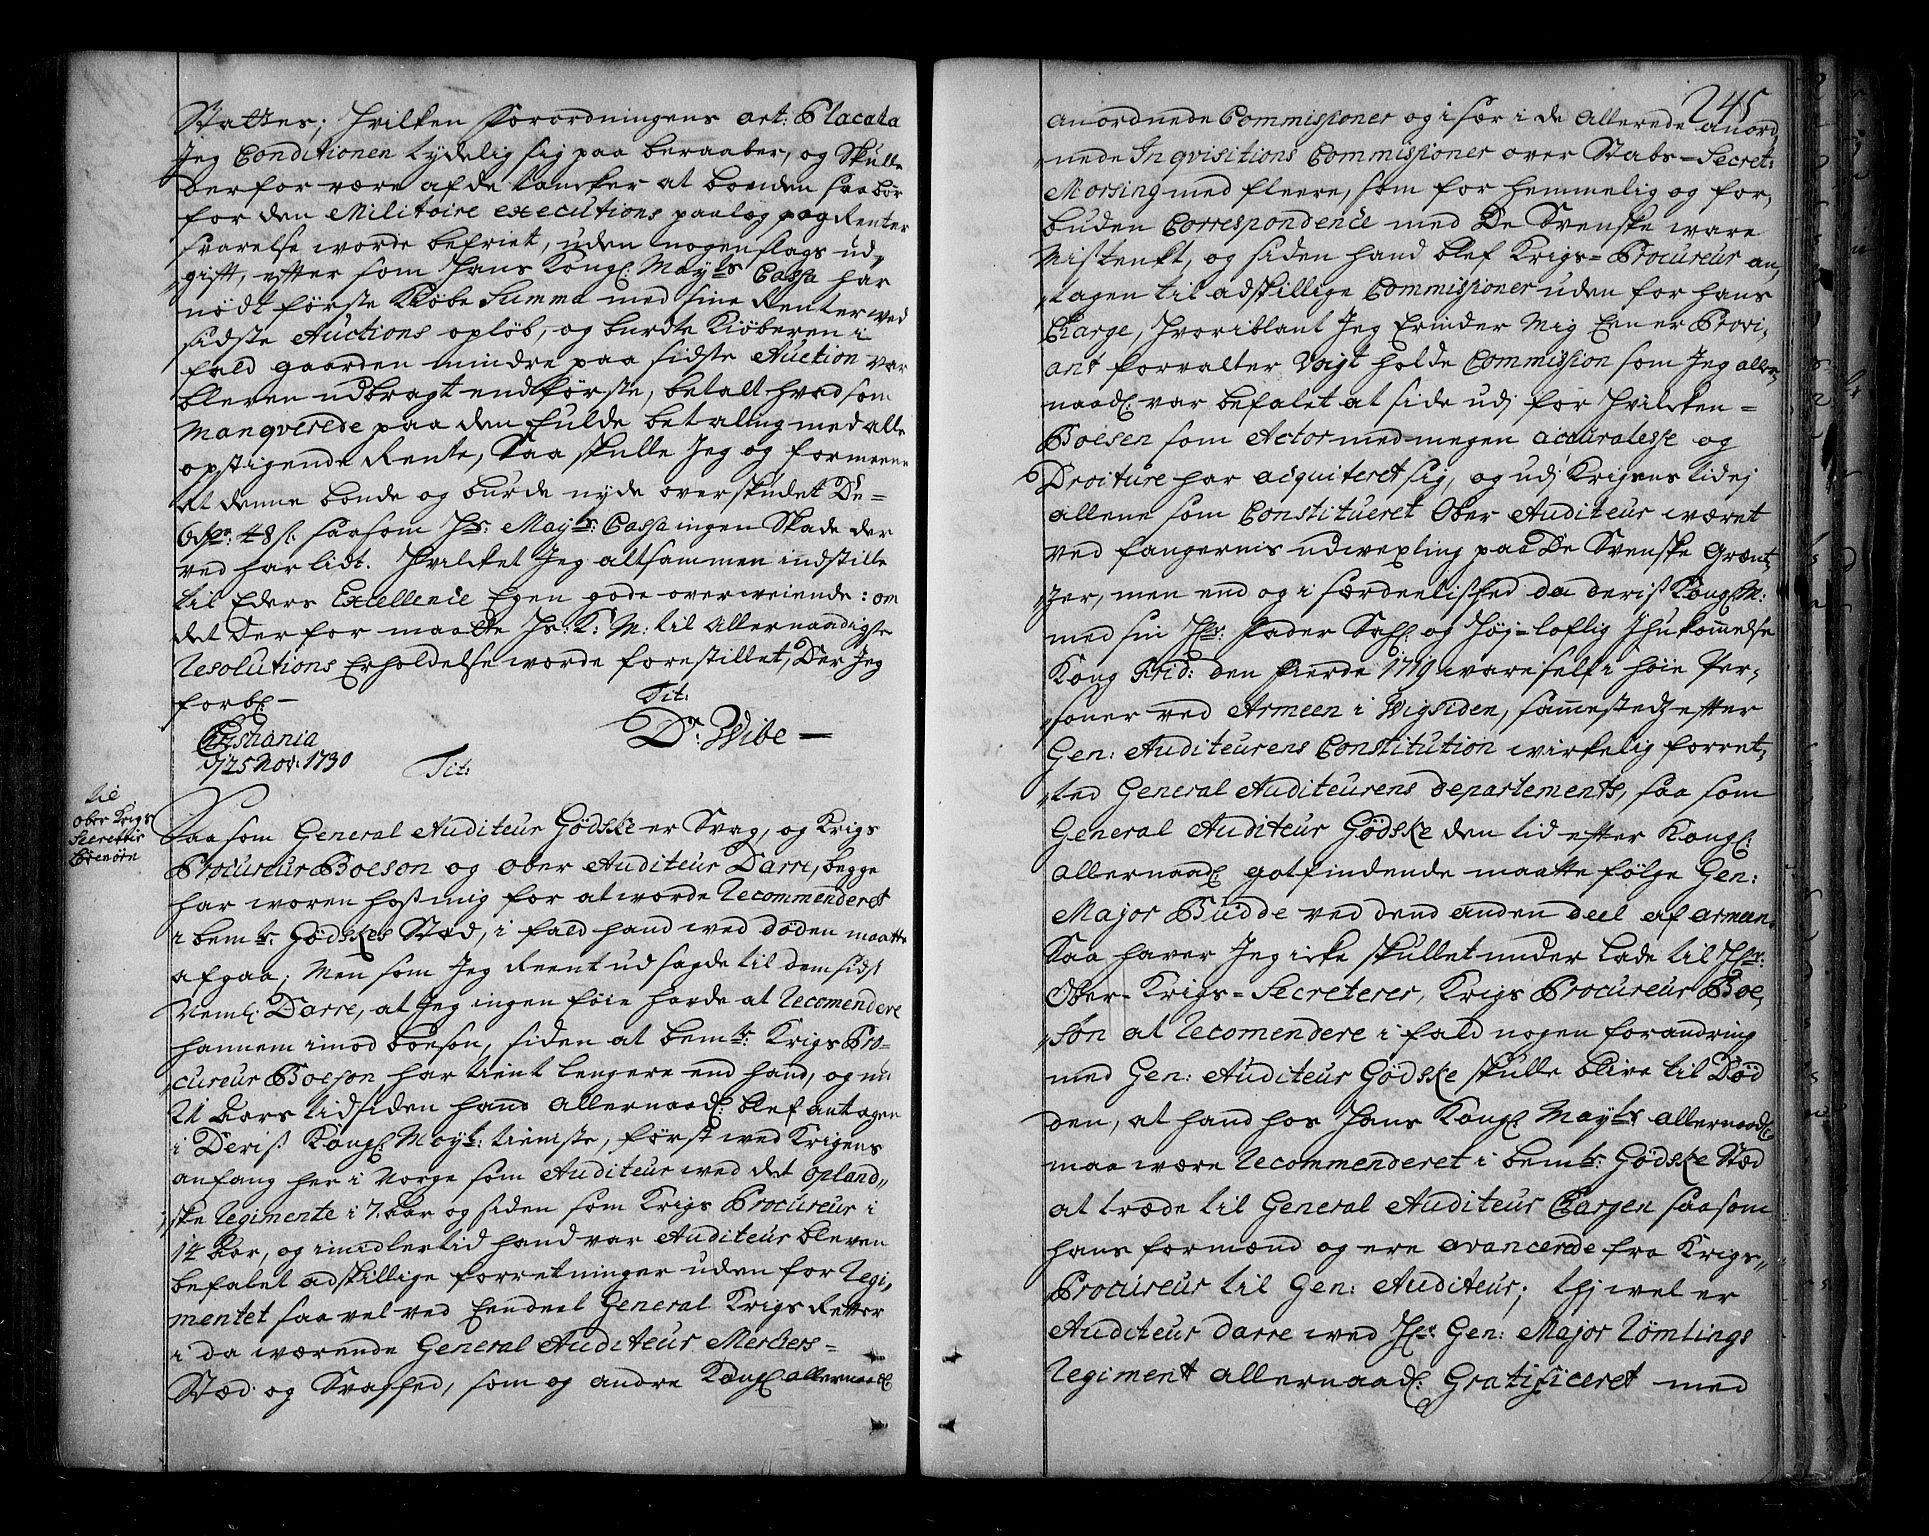 Stattes; Hvilken Forordningens art: Placata
Jeg Conditionen tydelig sig paa beraaber, og Skulle
derfor være af de tancker at bonden saa bør
for den Militaire executions paalæg og Renter
svarelse worde befriet, uden nogen slags ud„
„gift, efter som Hans Kongl: Mayts Cassa har
nödt förste Kiöbe Summa med sine Renter ved
sidste Auctions opløb, og burdte Kiöberen i
fald gaarden mindre paa sidste Auction var
bleven udbragt end förste, betalt hvad som
Manqverede paa den fulde betaling med all
opstigende Rente, Saa skulle Jeg og formeene
at denne bonde og burde nyde overskudet De=
6 dlr: 48 s. saasom Hs: Mayts: Cassa ingen Skade der
ved har lidt. Hvilcket Jeg altsammen indstille
til Eders Excellence Egen gode overveiende: om
det derfor maatte Hs: K: M: til Allernaadigste
Resolutions Erholdelse worde forestillet, Der Jeg
forbl: —
Tit:
D. Wibe —
Christiania
d/25 Nov: 1730
Tit:
til
Ober Krigs
Secretter
Løvenörn
Saa som General Auditeur Gödske er Svag, og Krigs
Procureur Boeson og ober Auditeur Darre, begge
har woren hos mig for at worde Recommenderet
i bemte: Gödskes Stæd, i fald hand ved döden maatte
afgaa; Men som Jeg Reent ud sagde til dem sidst
Neml: Darre, at Jeg ingen föie hafde at Recomendere
hannem imod boeson, siden at bemte: Krigs Pro-
cureur Boeson har tient lengere end hand, og nu
21 Aars tid siden hand allernaadl: blef antagen
i Deris Kongl Mayts: tieniste, först wed Krigens
anfang her i Norge som Auditeur wed det Opland„
„ske Regimente i 7. Aar og siden som Krigs Procureur i
14 Aar, og imidlertid hand var Auditeur bleven
befalet adskillige forretninger uden for Regi„
mentet saa vel ved Eendeel General Krigs Retter
i da wærende General Auditeur Merckers=
Stæd og Svaghed, som og andre Kongl allernaadl:
245
anordnede Commissioner og i sær i de allerede anord
„nede Inqvisitions Commissioner over Stabs-Secret:
Morsing med fleere, som for hemmelig og for,
buden Correspondence med De Svenske ware
Mistenkt, og siden hand blef Krigs=Procureur an„
„tagen til adskillige Commissioner uden for hans
Charge, Hvoriblant Jeg Erinder Mig Een er Provi„
ant forvalter Voigt holde Commission som Jeg aller„
naadl: var befalet at side udj for Hvilcken=
Boesen som Actor med megen accuratesse og
Droiture har acquiteret sig, og udj Krigens tidej
allene som Constitueret Ober Auditeur wæret
ved fangernis udwexling paa De Svenske Grænt„
„zer, men end og i særdeelished da deris Kongl M:
med sin Hr: Fader Sahl og Höj-loflig Ihukommelse
Kong Frid: den fierde 1719 ware self i höie Per-
„soner ved Armeen i Wigsiden, sammestedz efter
Gen: Auditeurens Constitution wirkelig forret„
„ted General Auditeurens departements, saa som
General Auditeur Gödske den tid efter Kongl:
allernaadl gotfindende maatte fölge Gen:
Major Budde ved dend anden deel af armeen.
Saa haver Jeg icke skullet under lade til Hr:
Ober-Krigs=Secreterer, Krigs Procureur Boe„
„søn at Recomendere i fald nogen forandring
med Gen: Auditeur Gödske skulle blive til Död
den, at hand hos Hans Kongl Mayts allernaadl:
maa wære Recommenderet i bemte: Gödske Stæd
at træde til General Auditeur Chargen saa som
hans formænd og ere avancerede fra Krigs„
Procureur til Gen: Auditeur; thj wel er
Auditeur Darre wed Hr Gen: Major Römlings
Regiment allernaadl: Gratificeret med